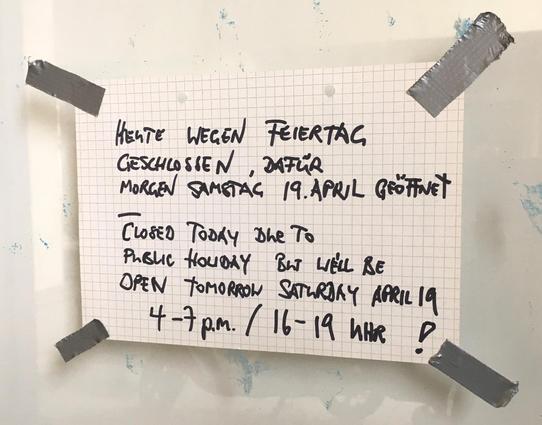 HEUTE WEGEN FEIERTAG
GESCHLOSSEN, DAFÜR
MORGEN SAMSTAG 19. APRIL GEÖFFNET
CLOSED TODAY DUE TO
PUBLIC HOLIDAY BUT WE'LL BE
OPEN TOMORROW SATURDAY APRIL 19
4-7 p.m. / 16-19 UHR !